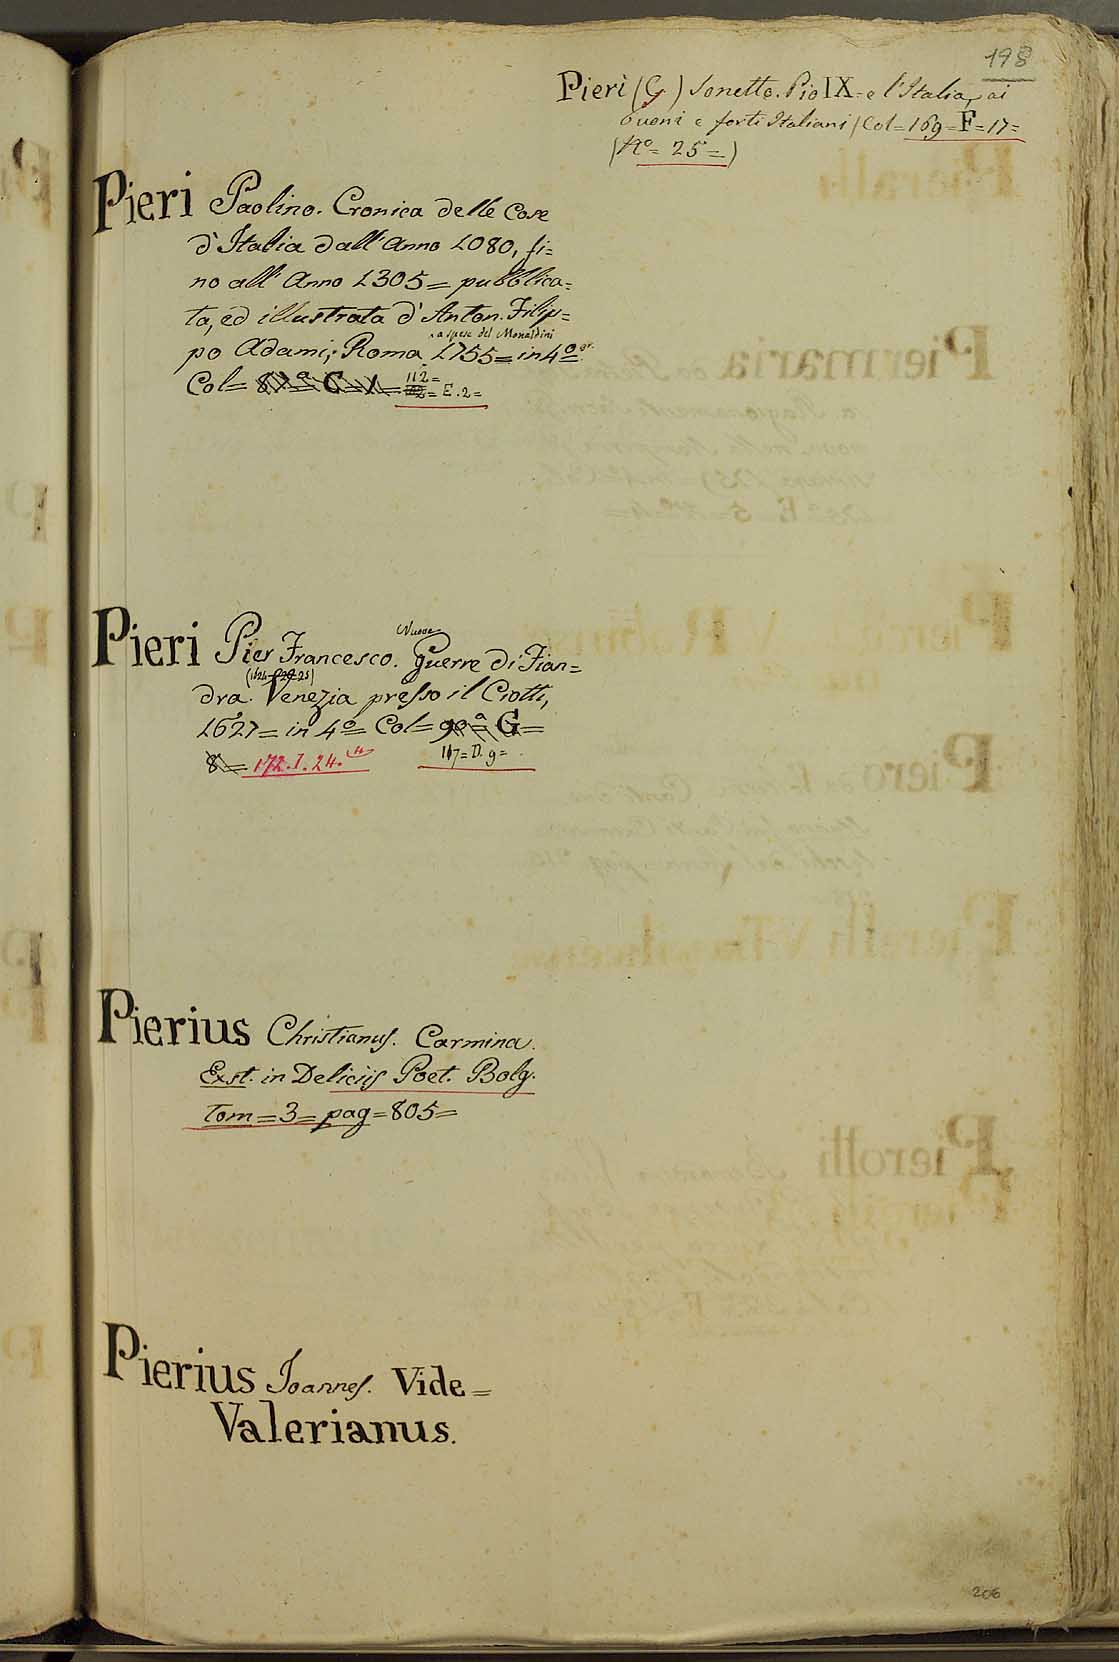 198
Pieri (G) Sonetto. Pio IX = e l'Italia, ai
buoni e forti Italiani (Col = 169 = F = 17 =
(N.º = 25 = )
Pieri Paolino. Cronica delle Cose
d'Italia dall'Anno 1080, fi=
no all'Anno 1305 = pubblica=
ta, ed illustrata d'Anton. Filip=
a spese del Monaldini
po Adami; Roma 1755 = in 4º gr.
Col = 82ª = C = 1 = 112 = E. 2 =
Pieri Pier Francesco. Nuove Guerre di Fian=
dra. Venezia presso il Ciotti,
1627 = in 4º = Col = 90ª = G =
8 = 172. I. 24. 117 = D. 9 =
Pierius Christianus. Carmina.
Exst. in Deliciis Poet. Belg.
tom = 3 = pag = 805 =
Pierius Joannes. Vide =
Valerianus.
206